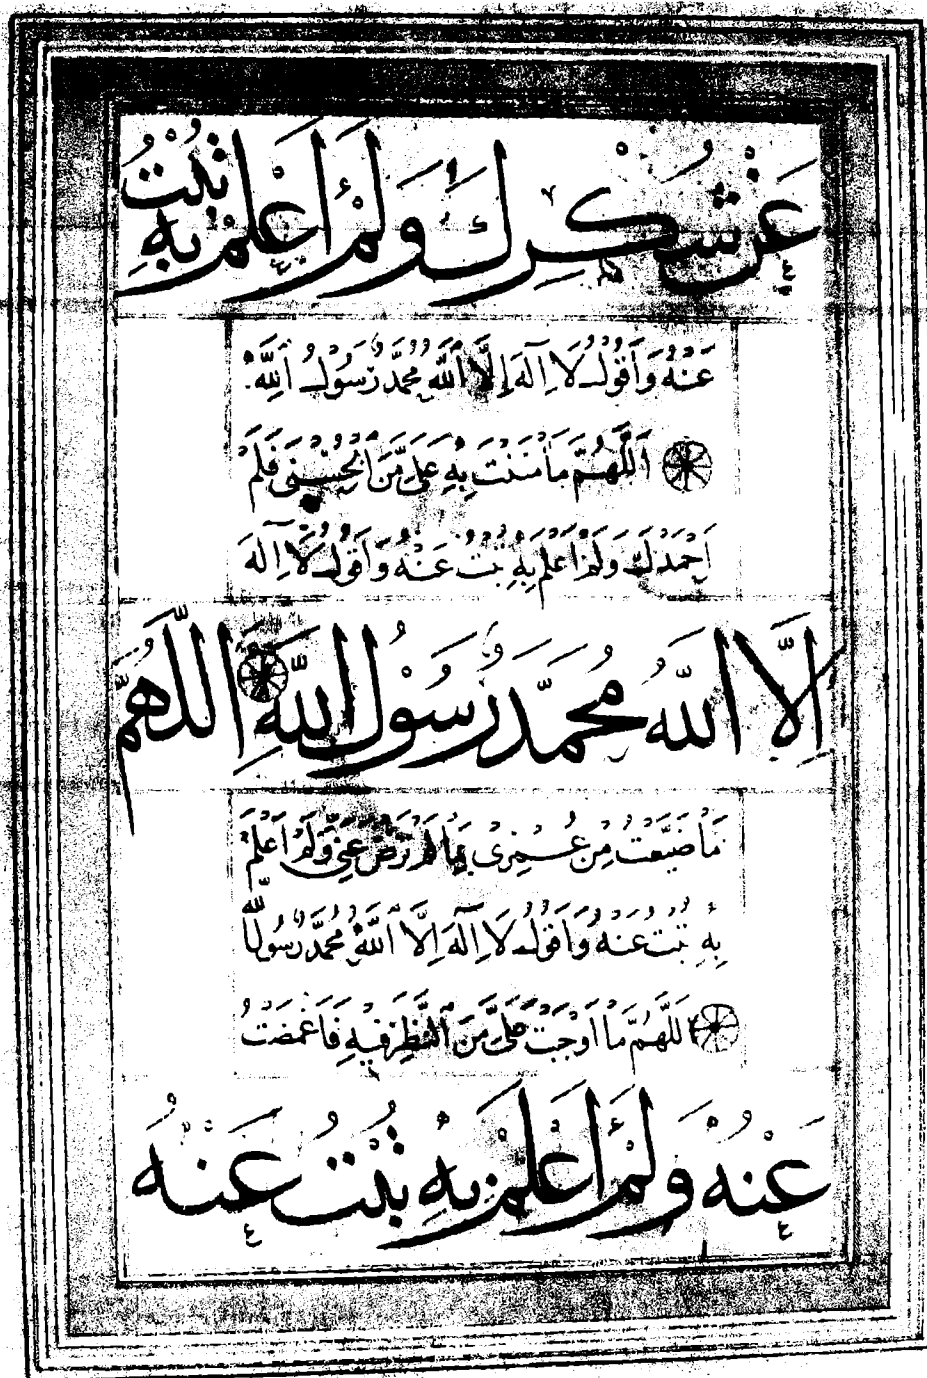 عَنْ شُكْرِكَ وَلَمْ اَعْلَمْ بِهِ تُبْتُ
عَنْهُ وَاَقُولُ لَا اِلٰهَ اِلَّا اللّٰهُ مُحَمَّدٌ رَسُولُ اللّٰهِ
اَللّٰهُمَّ مَا مَنَنْتَ بِهِ عَلَيَّ مِنَ الْحُسْنٰى فَلَمْ
اَحْمَدْكَ وَلَمْ اَعْلَمْ بِهِ تُبْتُ عَنْهُ وَاَقُولُ لَا اِلٰهَ
اِلَّا اللّٰهُ مُحَمَّدٌ رَسُولُ اللّٰهِ اَللّٰهُمَّ
مَا ضَيَّعْتُ مِنْ عُمْرِى بِمَا لَمْ تَرْضَ عَنِّى وَلَمْ اَعْلَمْ
بِهِ تُبْتُ عَنْهُ وَاَقُولُ لَا اِلٰهَ اِلَّا اللّٰهُ مُحَمَّدٌ رَسُولُ اللّٰهِ
اَللّٰهُمَّ مَا اَوْجَبْتَ عَلَيَّ مِنَ النَّظَرِ فِيهِ فَاَغْمَضْتُ
عَنْهُ وَلَمْ اَعْلَمْ بِهِ تُبْتُ عَنْهُ